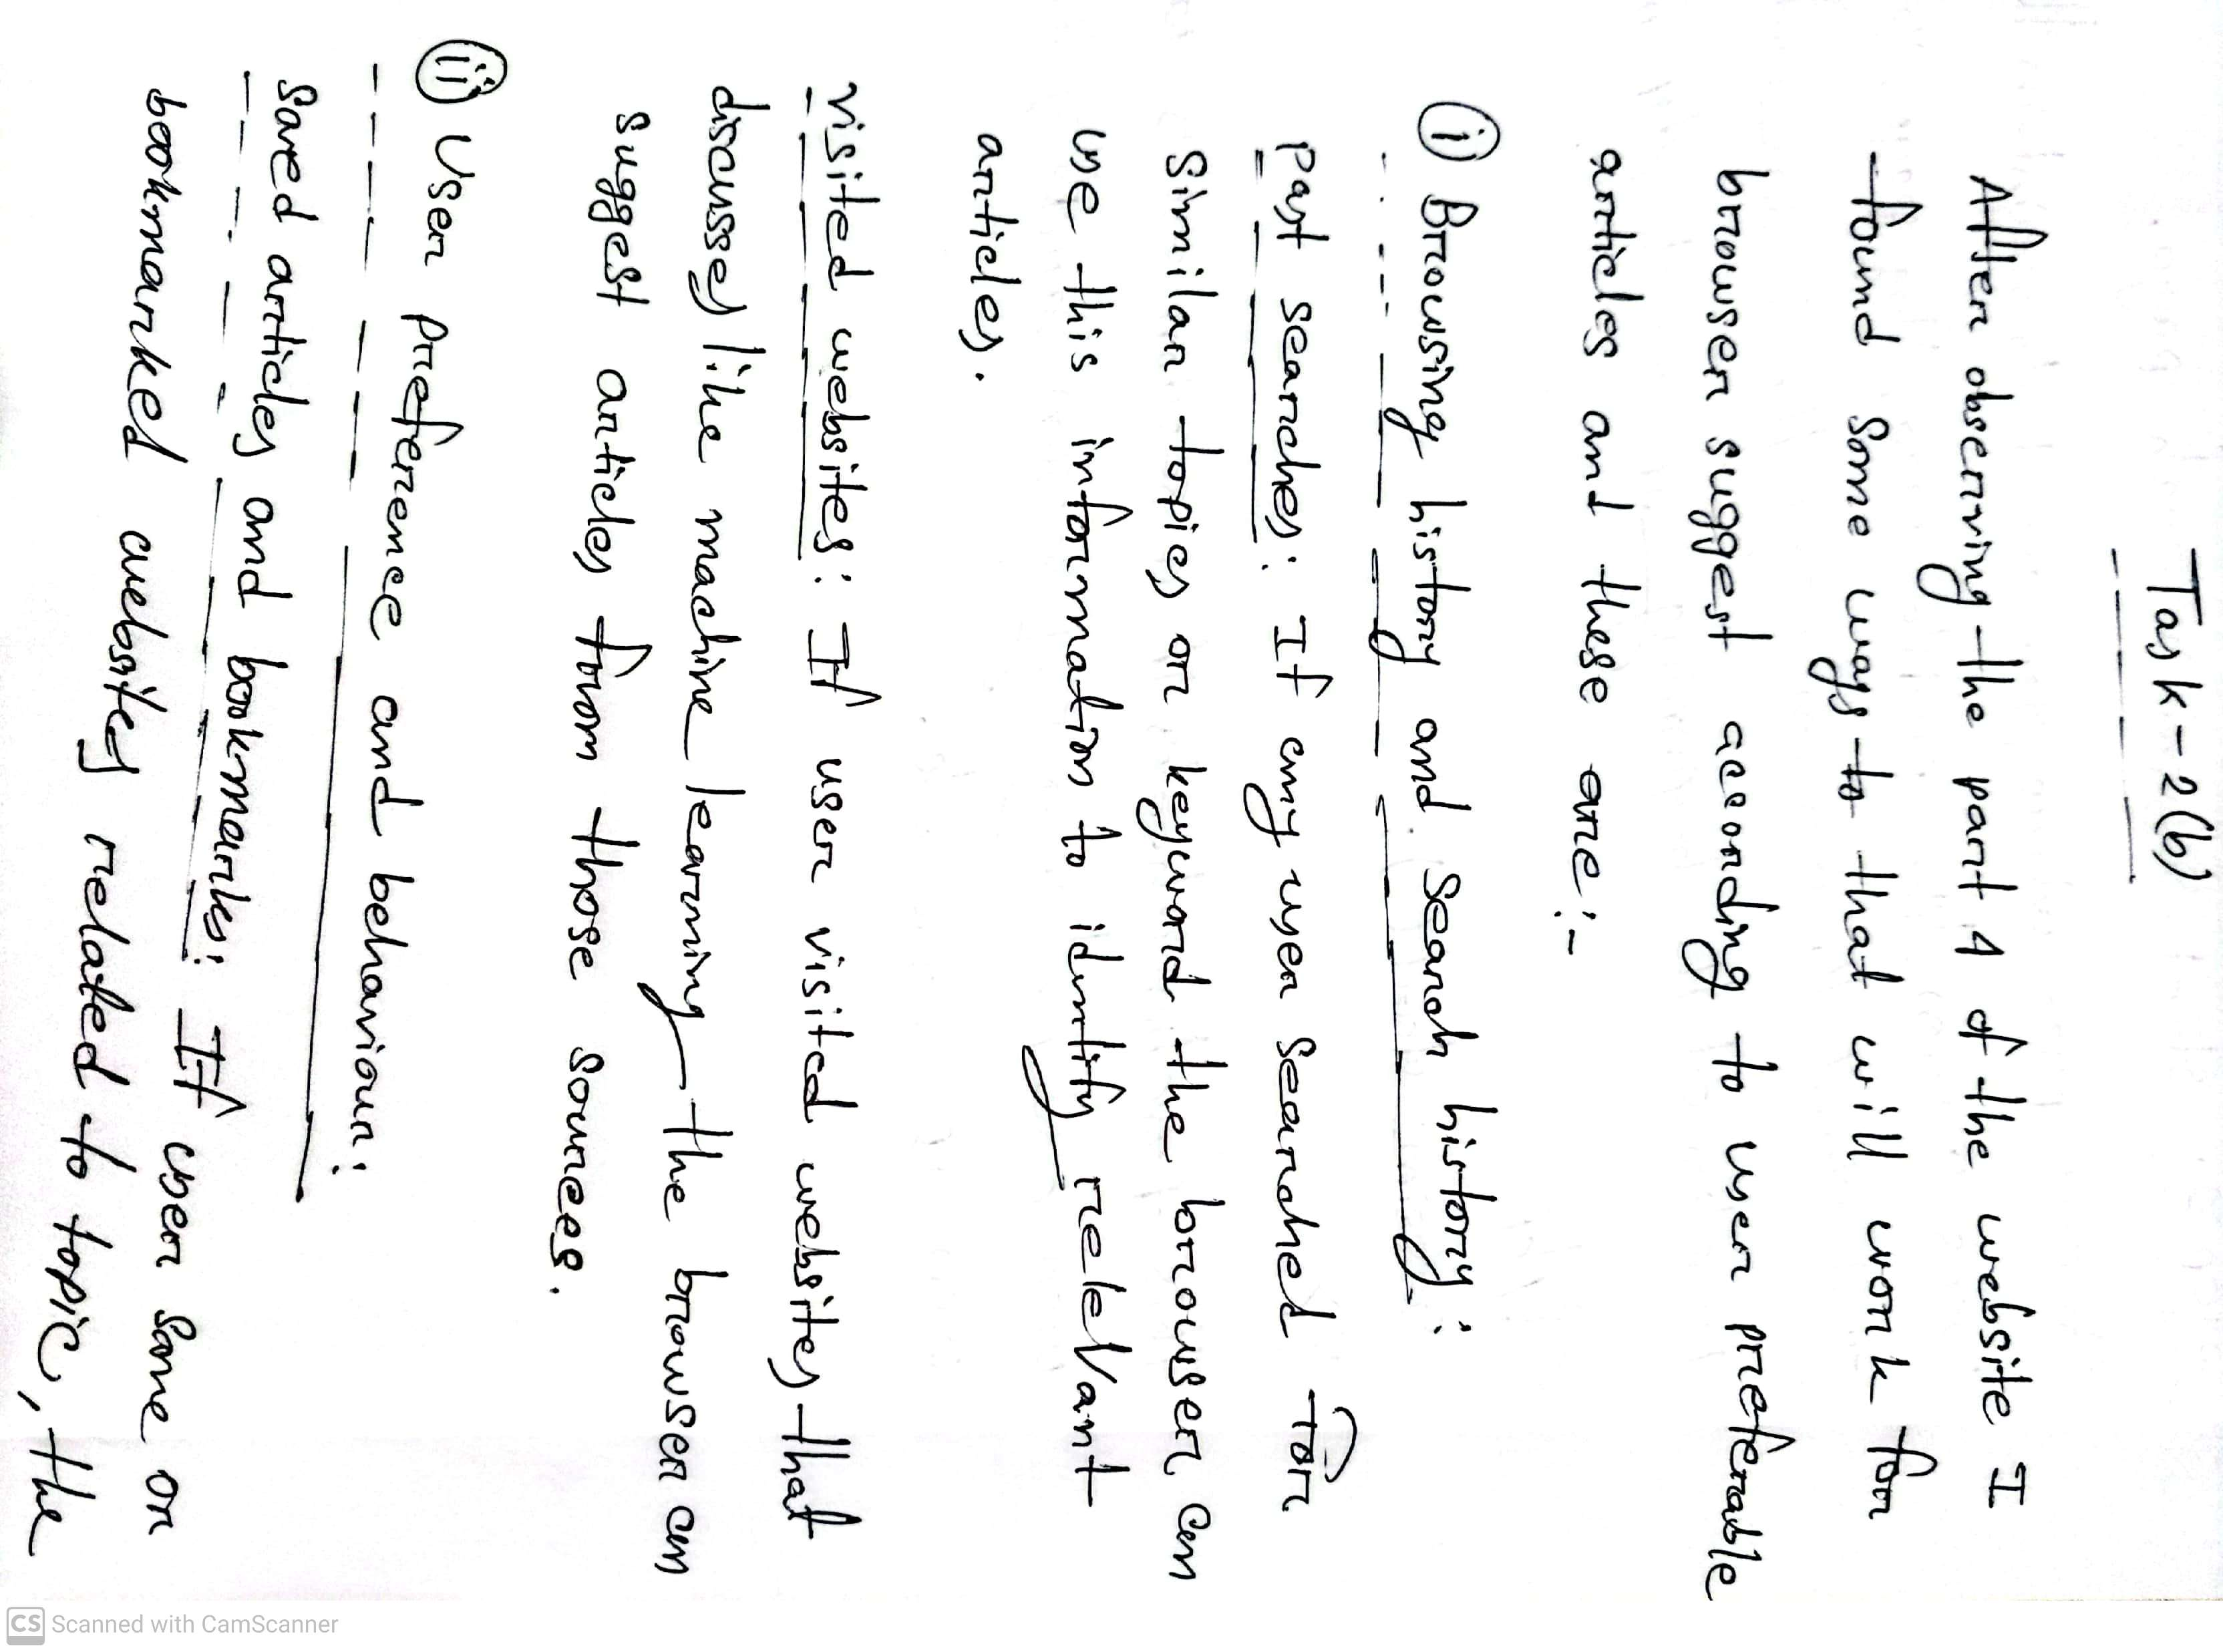 Task-2(b)
After observing the part 4 of the website I
found some ways to that will work for
browser suggest according to user preferable
articles and these are:-
(i) Browsing history and search history:
Past searches: If any user searched for
similar topics or keyword the browser can
use this information to identify relevant
articles.
visited websites: If user visited websites that
discusses like machine learning the browser can
suggest articles from those sources.
(ii) User preference and behaviour:
Saved articles and bookmarks: If user same or
bookmarked websites related to topic, the
CS Scanned with CamScanner